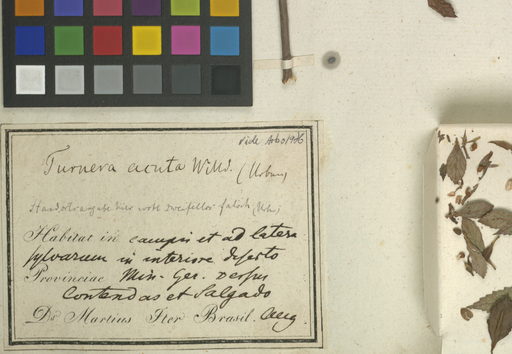 vide Arbo 1986
Turnera acuta Willd. (Urban)
Standortsangabe hier wohl zweifellos falsch (Urb.)
Habitat in campis et ad latera
sylvarum in interiore deserto
Provinciae Min. Ger. versus
Contendas et Salgado
Dr. Martius Iter Brasil. Aug.